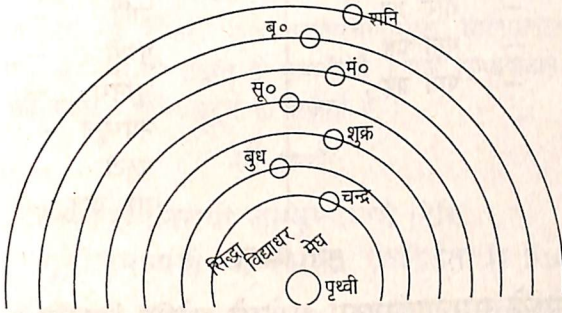 शनि
बृ०
मं०
सू०
शुक्र
बुध
चन्द्र
सिद्धा विद्याधर मेघ
पृथ्वी